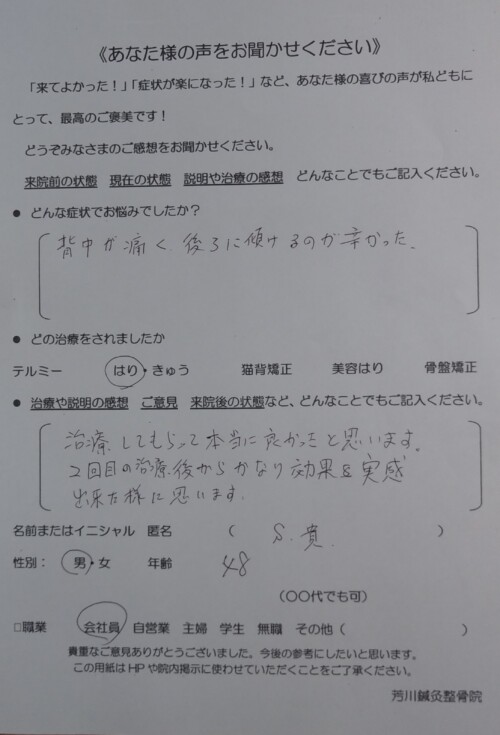 《あなた様の声をお聞かせください》
「来てよかった！」「症状が楽になった！」など、あなた様の喜びの声が私どもに
とって、最高のご褒美です！
どうぞみなさまのご感想をお聞かせください。
来院前の状態　現在の状態　説明や治療の感想　どんなことでもご記入ください。
● どんな症状でお悩みでしたか？
背中が痛く、後ろに傾けるのが辛かった。
● どの治療をされましたか
テルミー　はり・きゅう　猫背矯正　美容はり　骨盤矯正
● 治療や説明の感想　ご意見　来院後の状態など、どんなことでもご記入ください。
治療してもらって本当に良かったと思います。
2回目の治療後からかなり効果を実感
出来た様に思います。
名前またはイニシャル　匿名　（　S.貴　）
性別：　男・女　年齢　48
（〇〇代でも可）
□職業　会社員　自営業　主婦　学生　無職　その他（　）
貴重なご意見ありがとうございました。今後の参考にしたいと思います。
この用紙はHPや院内掲示に使わせていただくことをご了承ください。
芳川鍼灸整骨院